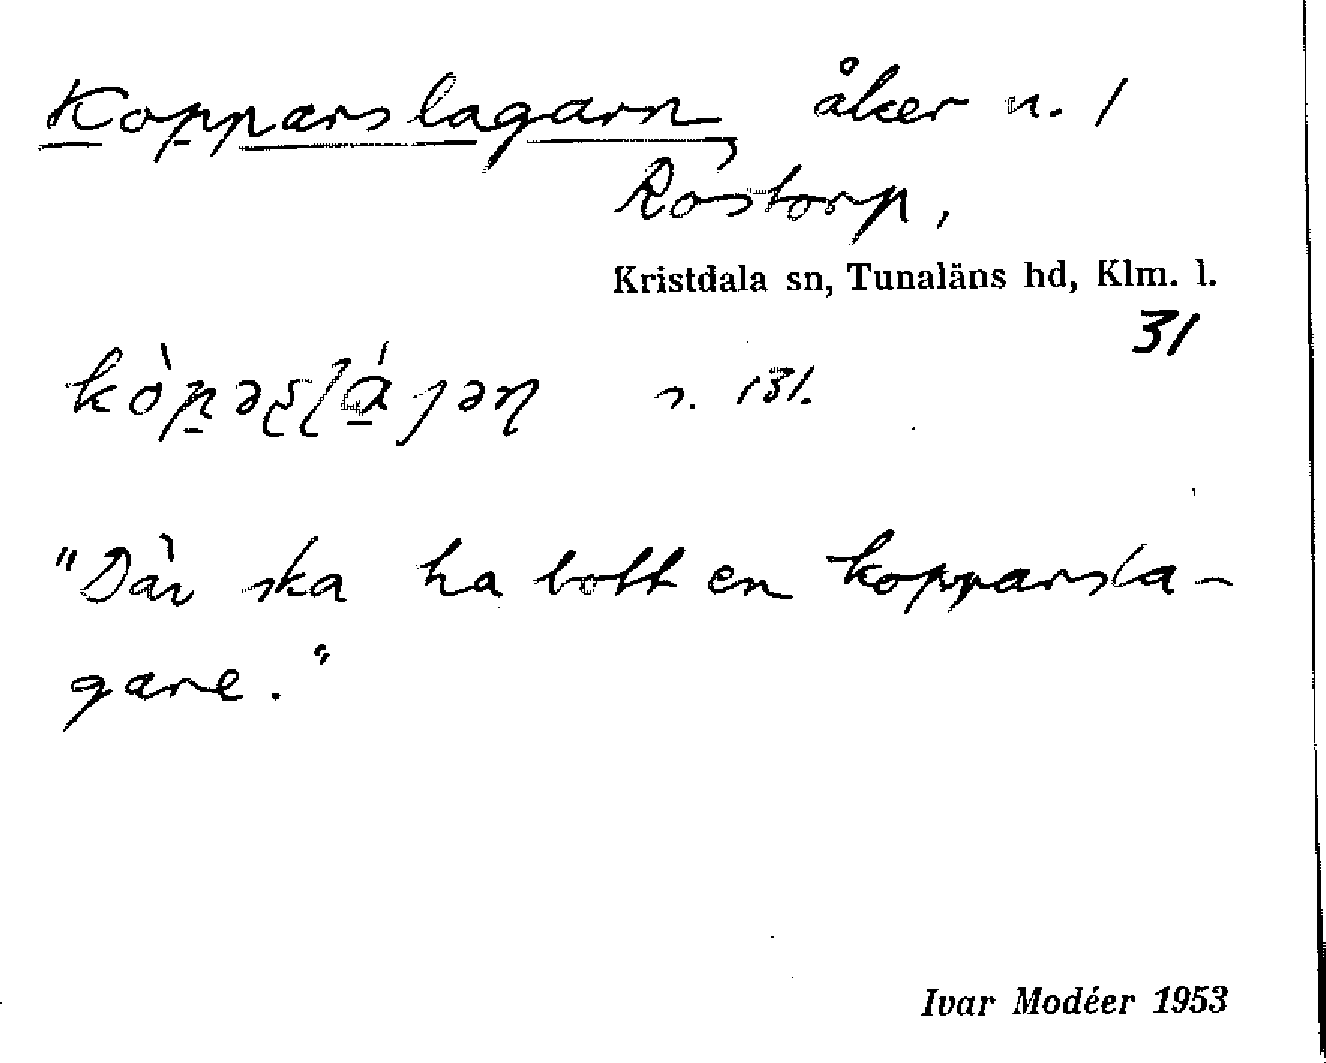 Kopparslagarn åker n. 1
Róstorp,
Kristdala sn, Tunaläns hd, Klm. l.
31
s. 131.
"Där ska ha bott en kopparsla-
gare."
Ivar Modéer 1953